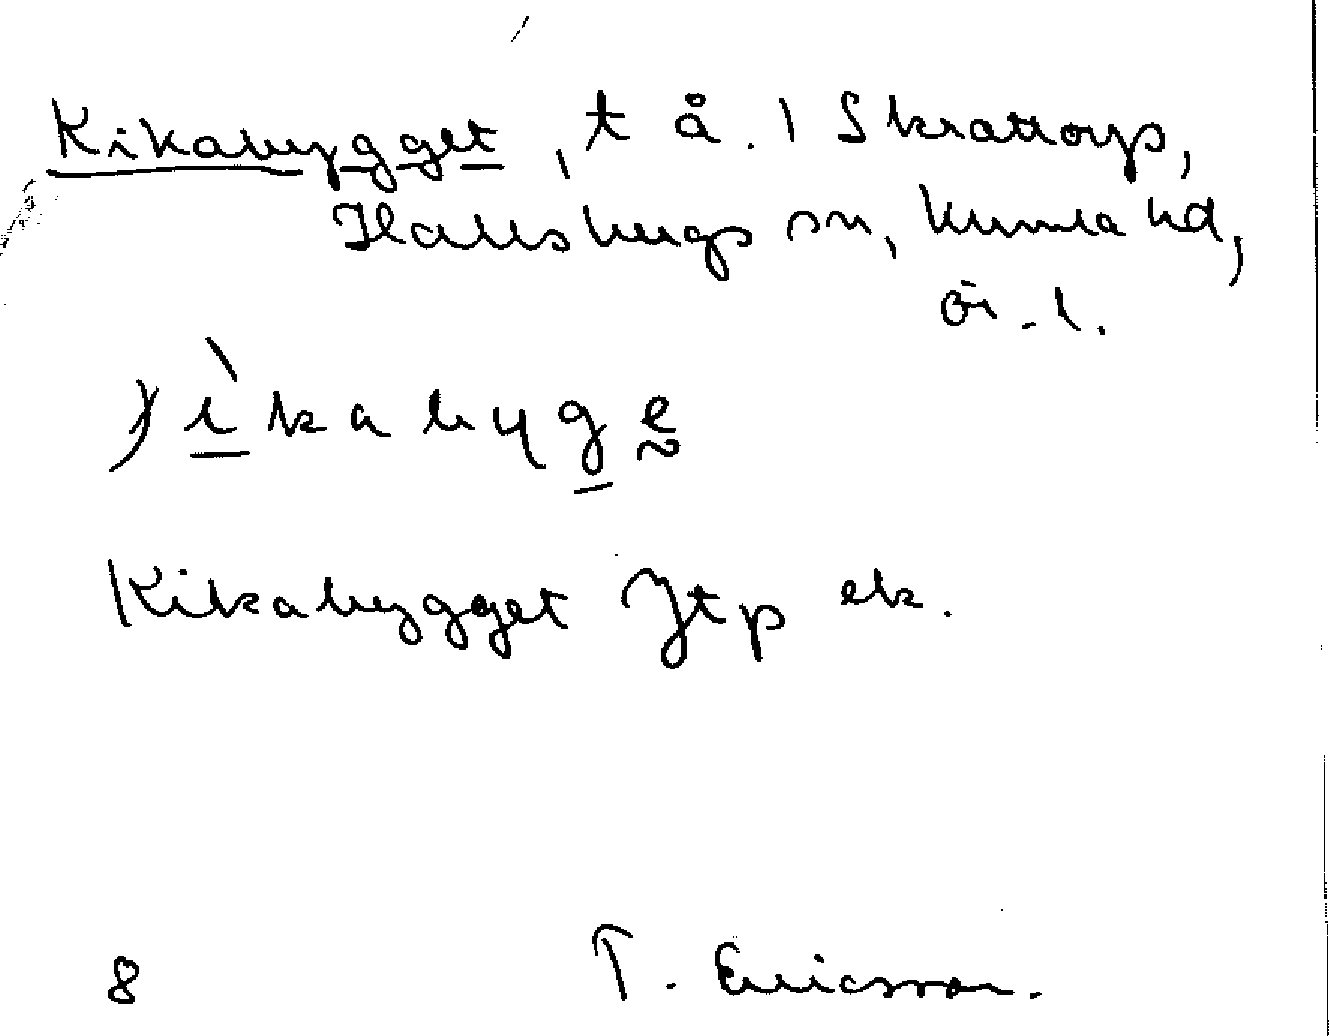 Kikabygget, t å. 1 Skrattorp,
Hallsbergs sn, Kumla hd,
Ör. l.
ìkabyge
Kikabygget Jtp ek.
8 T. Ericsson.